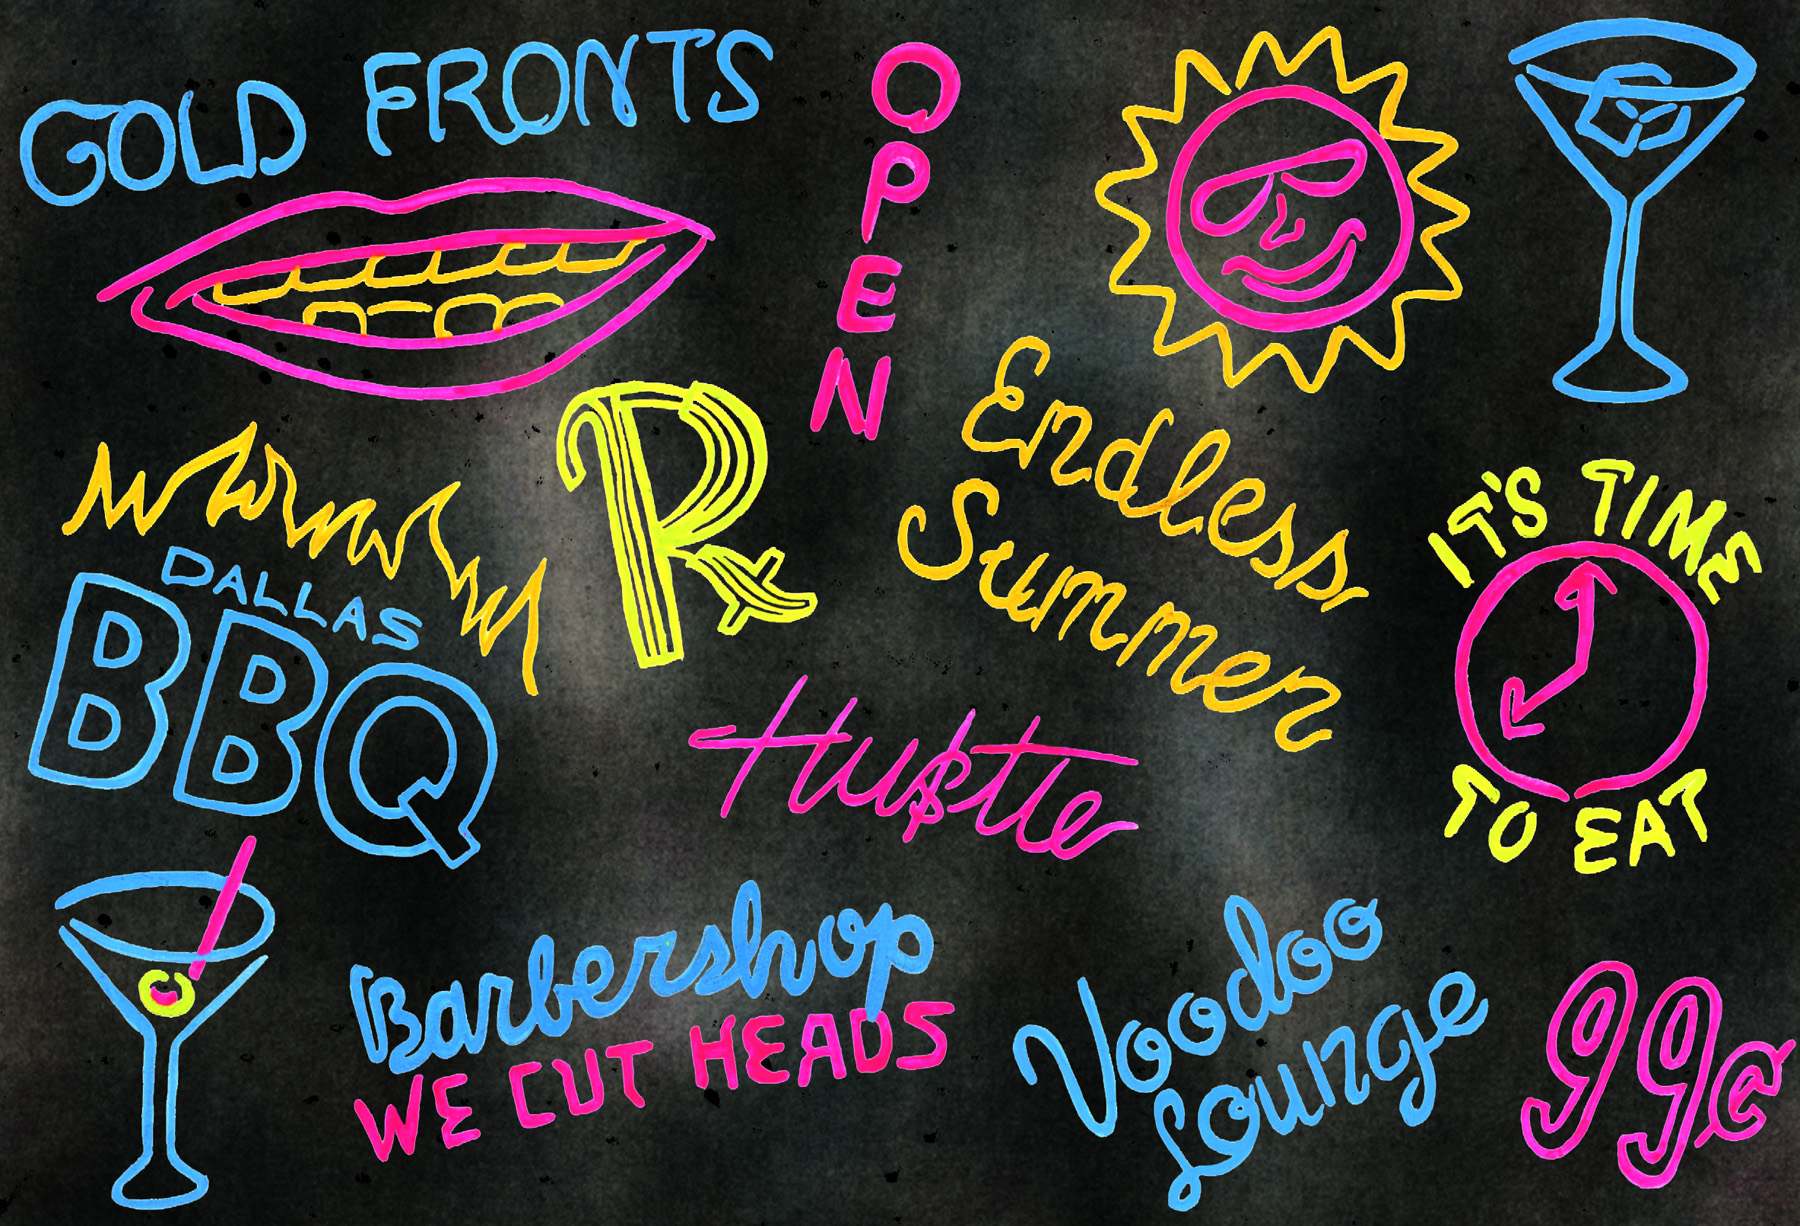 GOLD FRONTS
OPEN
Endless
Summer
Rx
DALLAS
BBQ
IT'S TIME
TO EAT
Hu$tle
Barbershop
WE CUT HEADS
Voodoo
Lounge
99¢